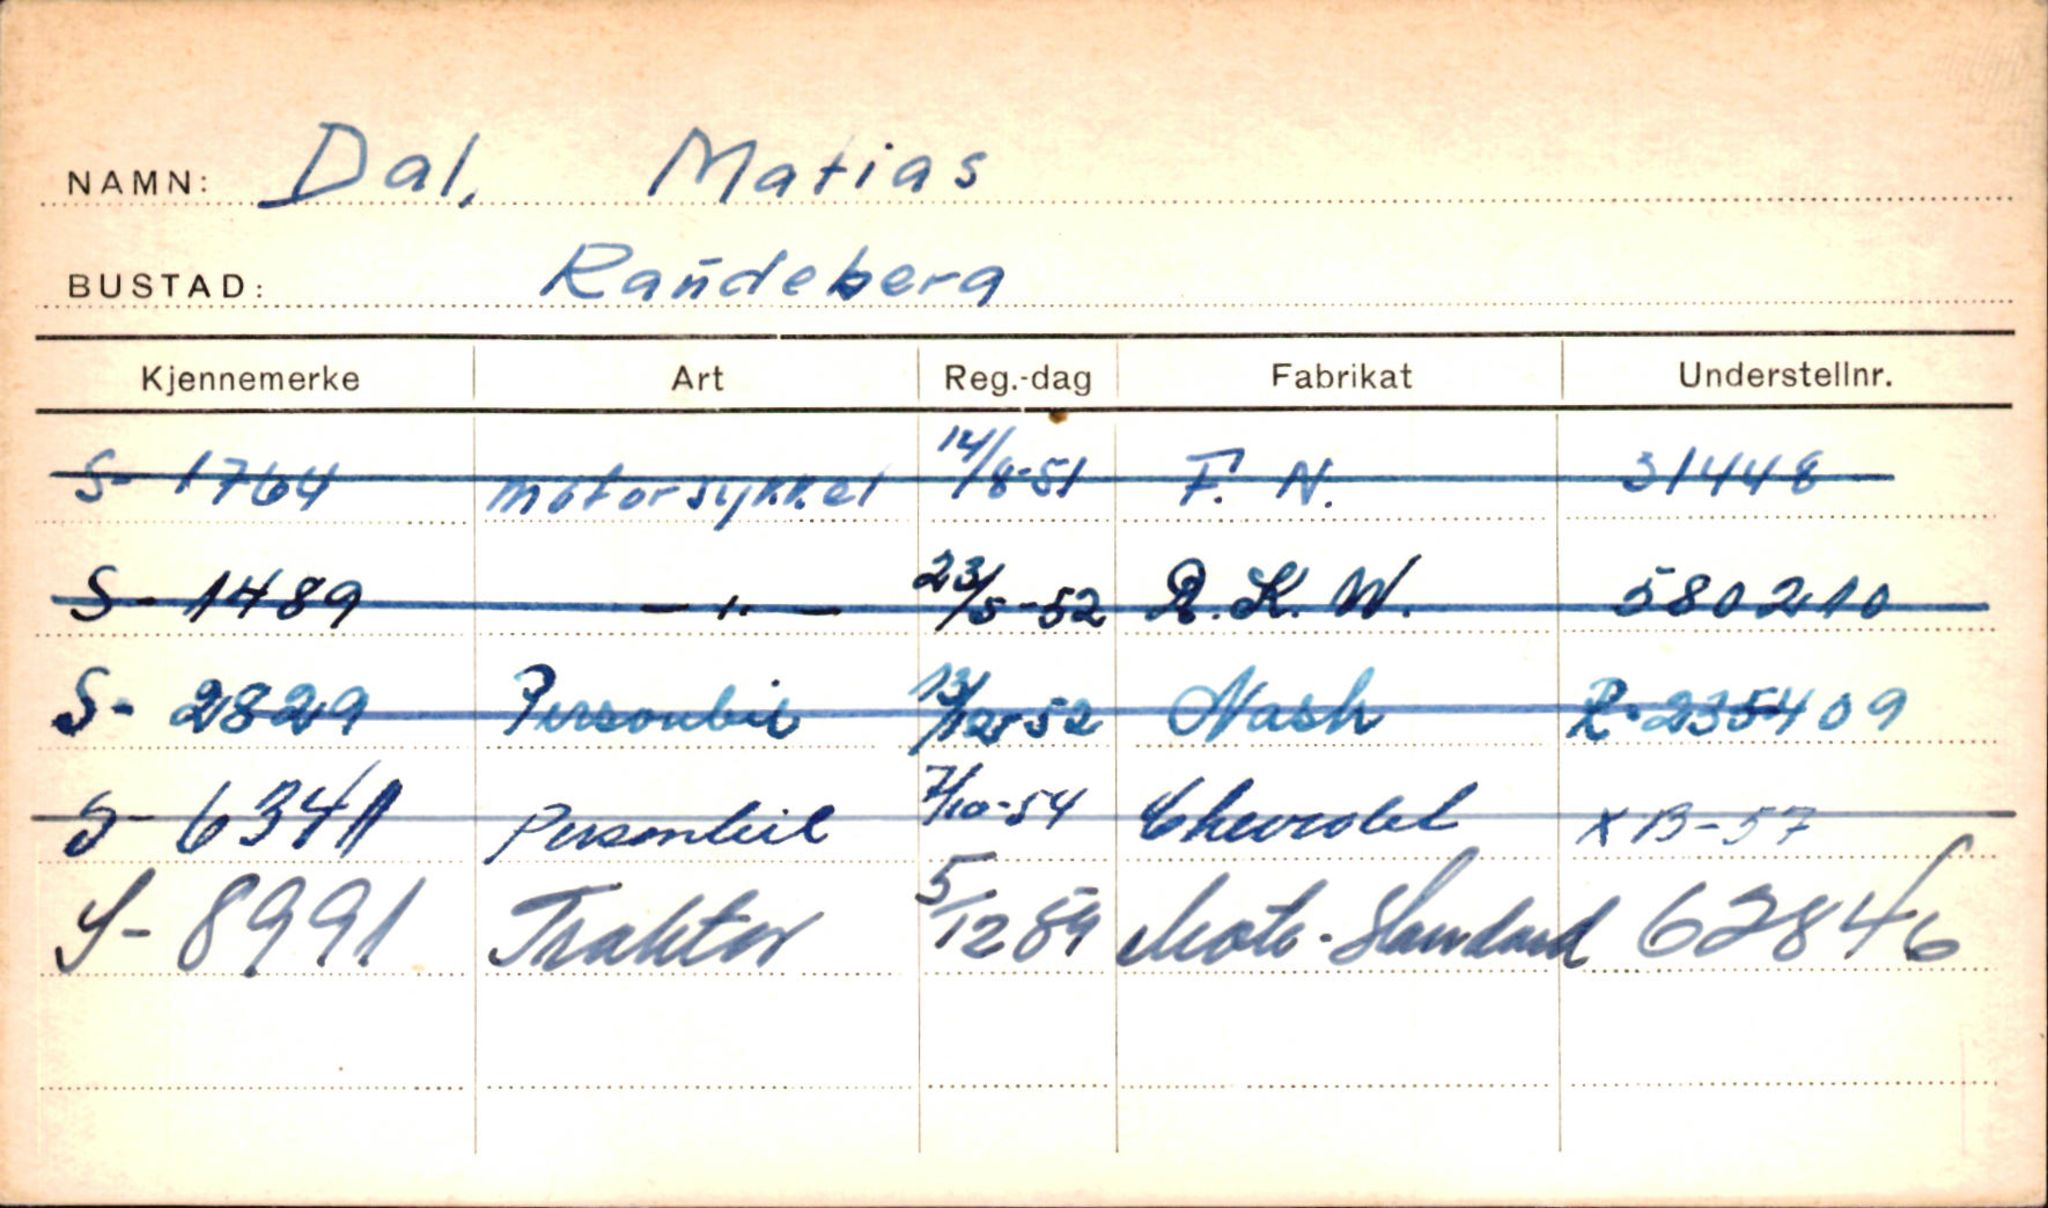 NAMN: Dal, Matias
BUSTAD: Randeberg
Kjennemerke Art Reg.-dag Fabrikat Understellnr.
S- 1764 motorsykkel 14/8-51 F. N. 31448
S- 1489 — " — 23/5-52 D. K. W. 580210
S- 2829 Personbil 13/12-52 Nash R-235409
S- 6341 Personbil 7/10-54 Chevrolet XB-57
S- 8991 Traktor 5/12 59 Moto-Standard 62846